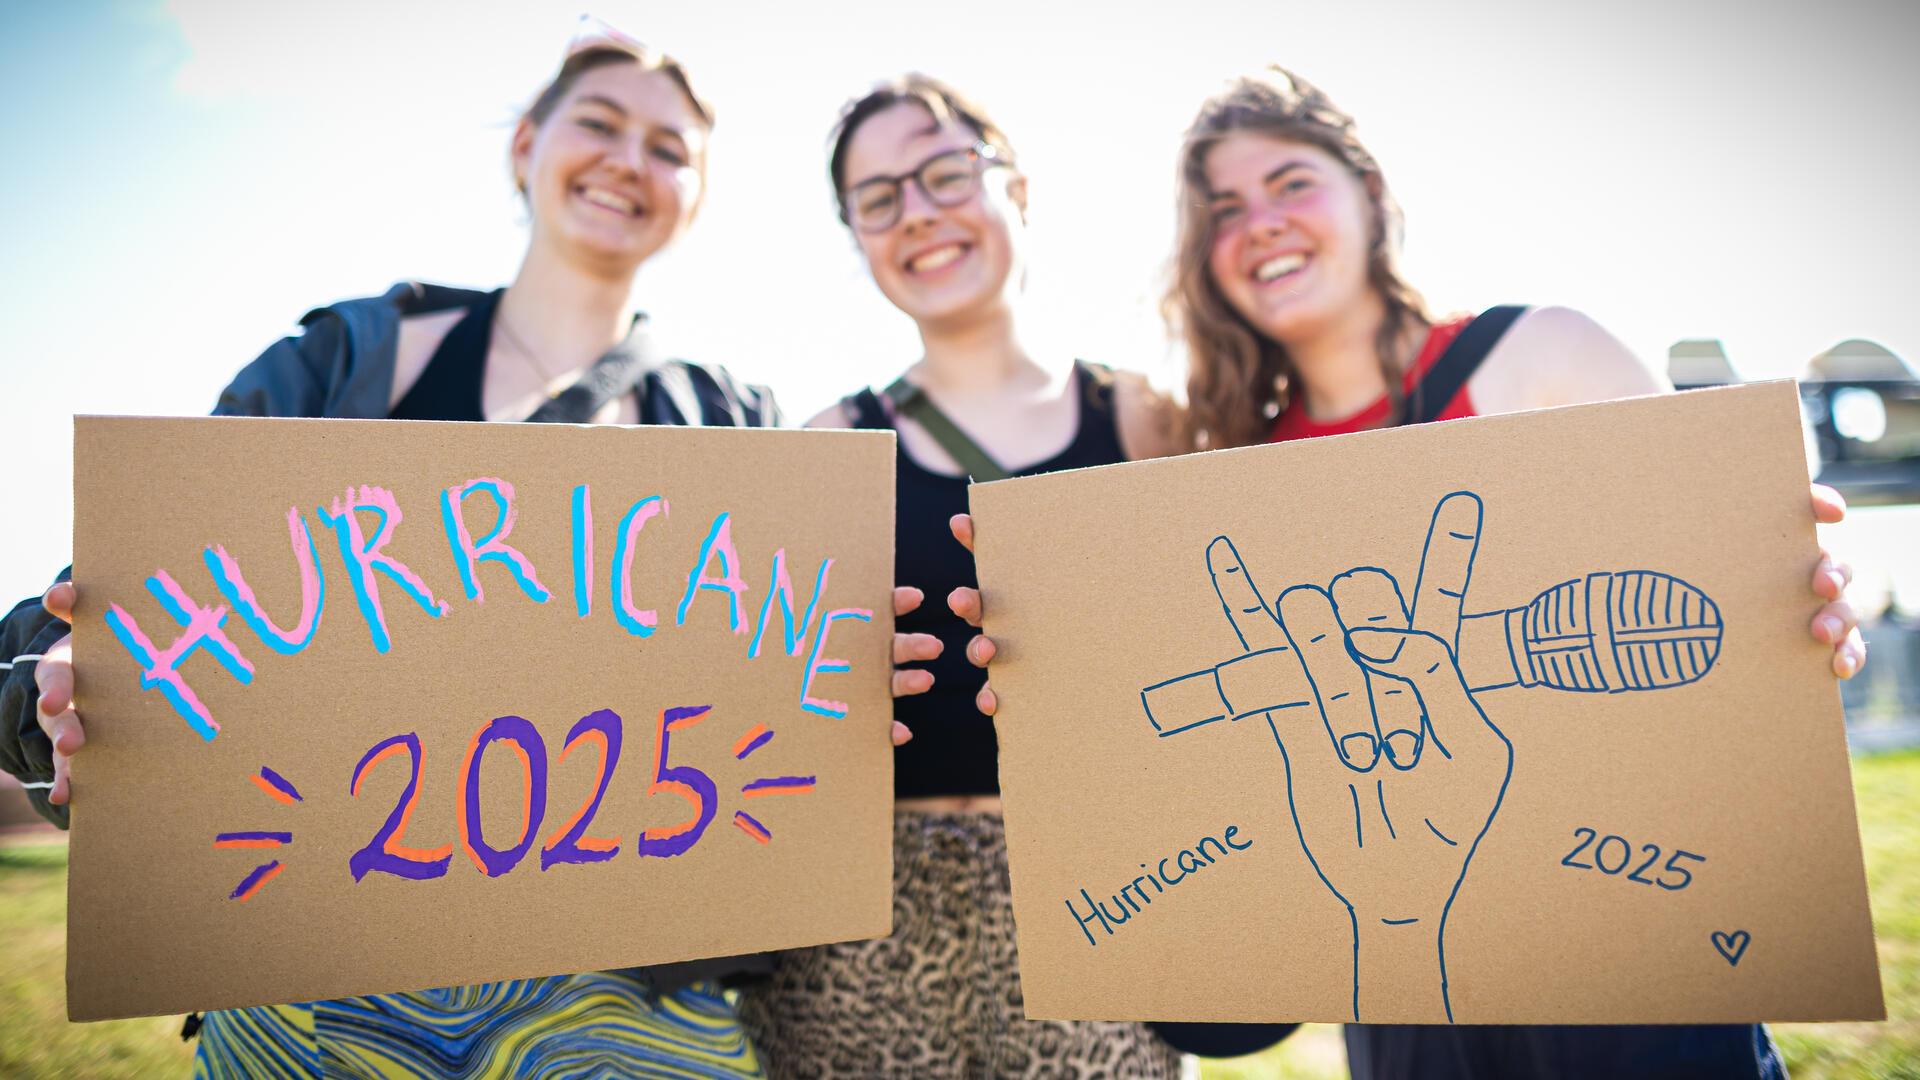 HURRICANE
2025
Hurricane
2025